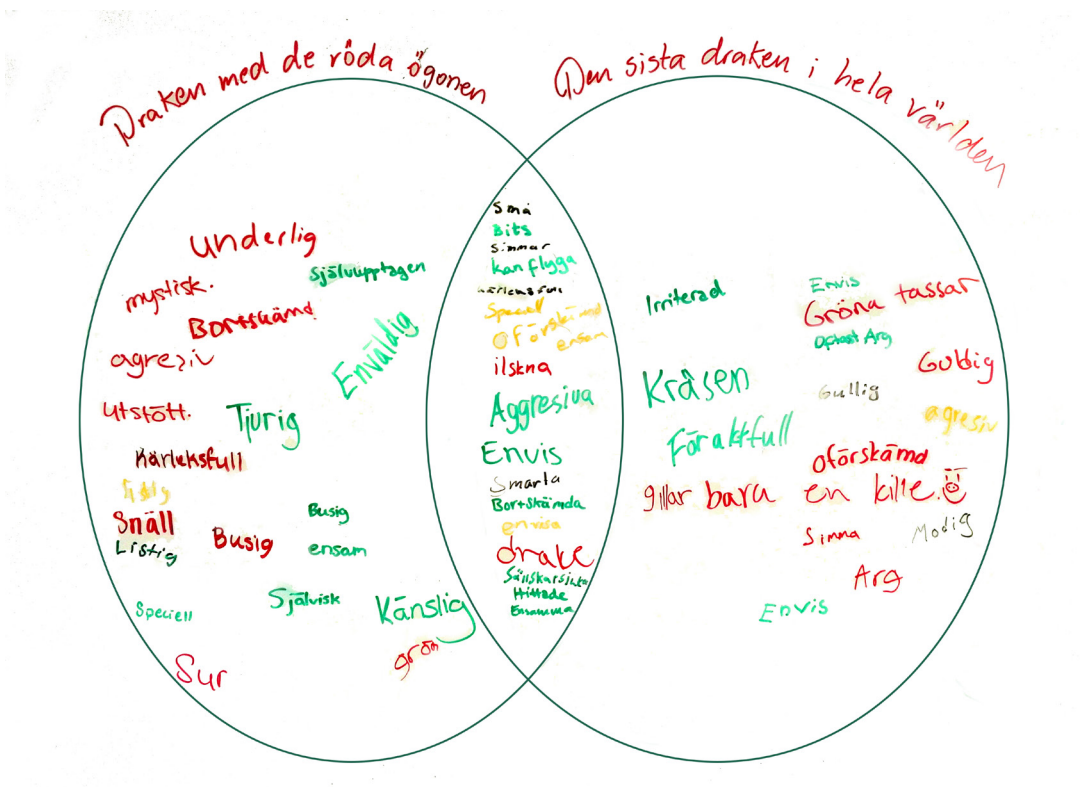 Draken med de röda ögonen
Den sista draken i hela världen
underlig
Självupptagen
mystisk.
Bortskämd
agresiv
Enväldig
utstött.
Tjurig
Kärleksfull
Snäll
Listig
Busig
Busig
ensam
Självisk
Känslig
Speciell
grön
Sur
Små
Bits
Simmar
kan flyga
Speciell
oförskämd
ensam
ilskna
Aggresiva
Envis
Smarta
Bortskämda
envisa
drake
Hittade
Ensamma
Irriterad
Envis
Gröna tassar
Oftast Arg
Guldig
Kräsen
Gullig
agresiv
Föraktfull
oförskämd
gillar bara en kille.
Simma
Modig
Arg
Envis